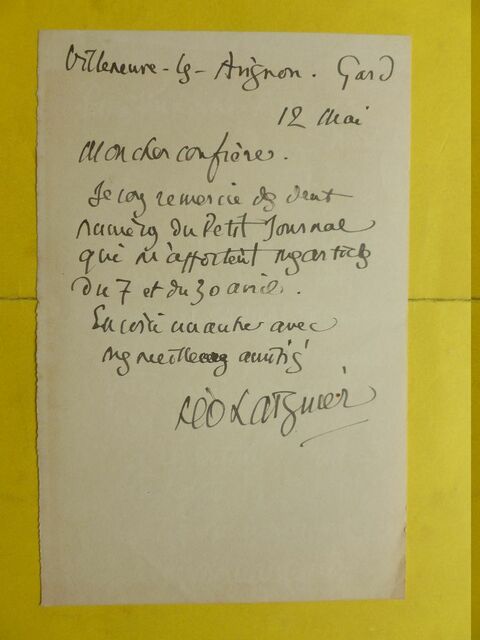 Villeneuve-lès-Avignon. Gard
12 Mai
Mon cher confrère.
Je vous remercie des deux
numéros du Petit Journal
qui m'apportent mes articles
du 7 et du 30 avril.
En voici un autre avec
mes meilleures amitiés
Léo Larguier